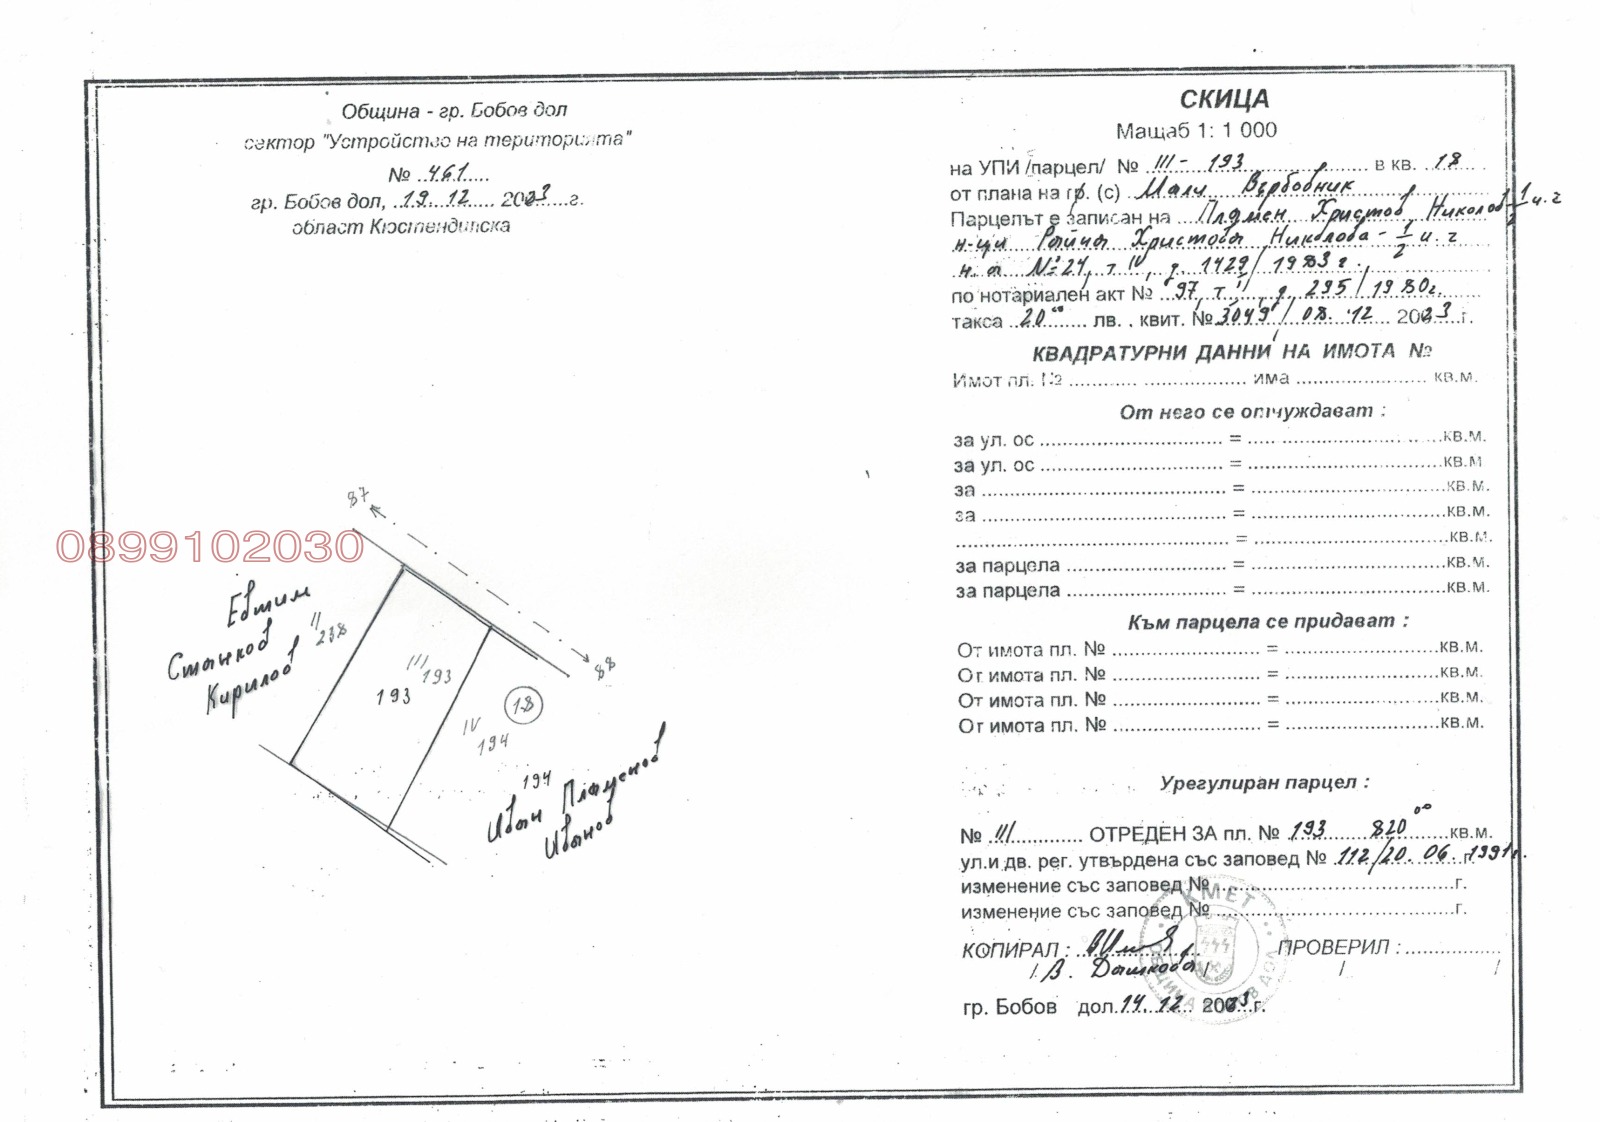 Община - гр. Бобов дол
сектор "Устройство на територията"
№ ..461.....
гр. Бобов дол, .19. 12 .... 2023...г.
област Кюстендилска
87
0899102030
Евтим
Станков
Кирилов
II
238
III
193
193
88
18
IV
194
194
Иван Пламенов
Иванов
СКИЦА
Мащаб 1: 1 000
на УПИ /парцел/ № III - 193 в кв. 18
от плана на гр. (с) Мали Върбовник
Парцелът е записан на Пламен Христов Николов 1/2 и. ч
н-ци Райна Христова Николова - 1/2 и. ч
н. а №24, т IV, д. 1429/1983 г.,
по нотариален акт № 97, т. II, д. 295/1980г.
такса 20 00 лв. . квит. № 3049/08. 12 2023г.
КВАДРАТУРНИ ДАННИ НА ИМОТА №
Имот пл. № ........... ................. има ...................... кв.м.
От него се отчуждават :
за ул. ос .............................. = ................................кв.м.
за ул. ос .............................. = ................................кв.м
за ........................................ = ................................кв.м.
за ........................................ = ................................кв.м.
............................................ = ................................кв.м.
за парцела .......................... = ................................кв.м.
за парцела .......................... = ................................кв.м.
Към парцела се придават :
От имота пл. № ........................ = ..........................кв.м.
От имота пл. № ........................ = ..........................кв.м.
От имота пл. № ........................ = ..........................кв.м.
От имота пл. № ........................ = ..........................кв.м.
Урегулиран парцел :
№ III............ ОТРЕДЕН ЗА пл. № 193 820 00 кв.м.
ул.и дв. рег. утвърдена със заповед № 112/20. 06. 1991г.
изменение със заповед № ........................................г.
изменение със заповед № ........................................г.
КОПИРАЛ : ПРОВЕРИЛ : ................
/ В. Дашкова / / /
гр. Бобов дол.14. 12 2003 г.
КМЕТ
ОБЩИНА БОБОВ ДОЛ